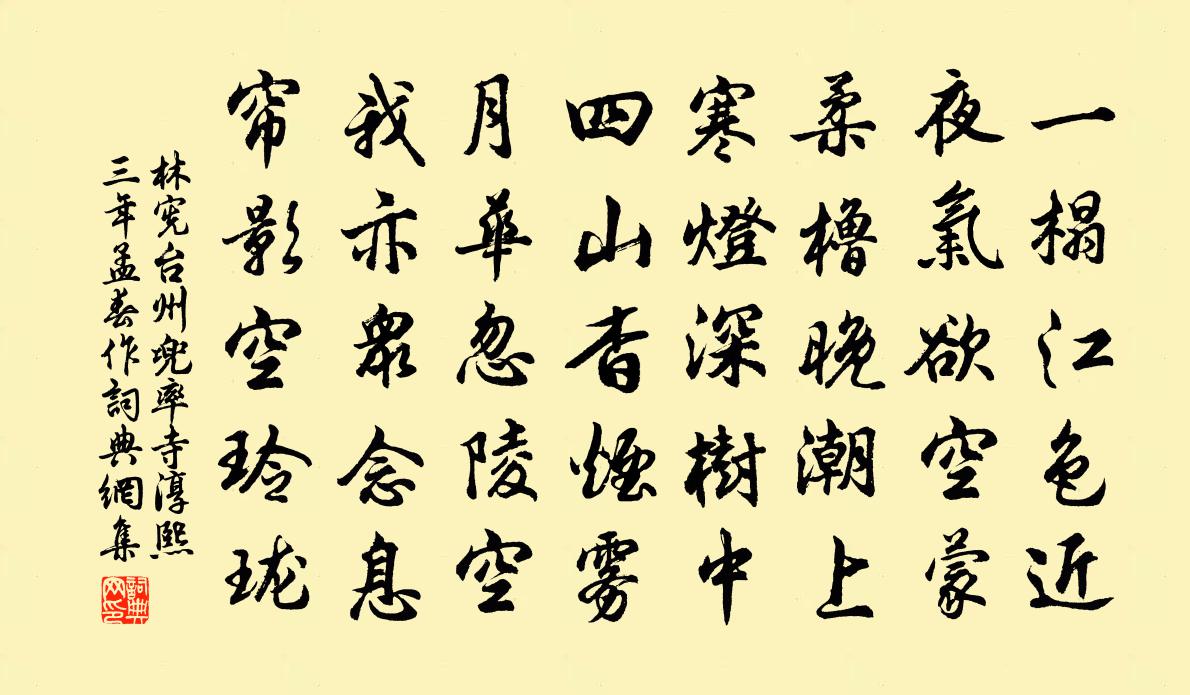 一榻江色近
夜氣欲空蒙
柔櫓晚潮上
寒燈深樹中
四山香煙雾
月華忽陵空
我亦衆念息
帘影空玲珑
林宪台州兜率寺淳熙
三年孟春作詞典網集